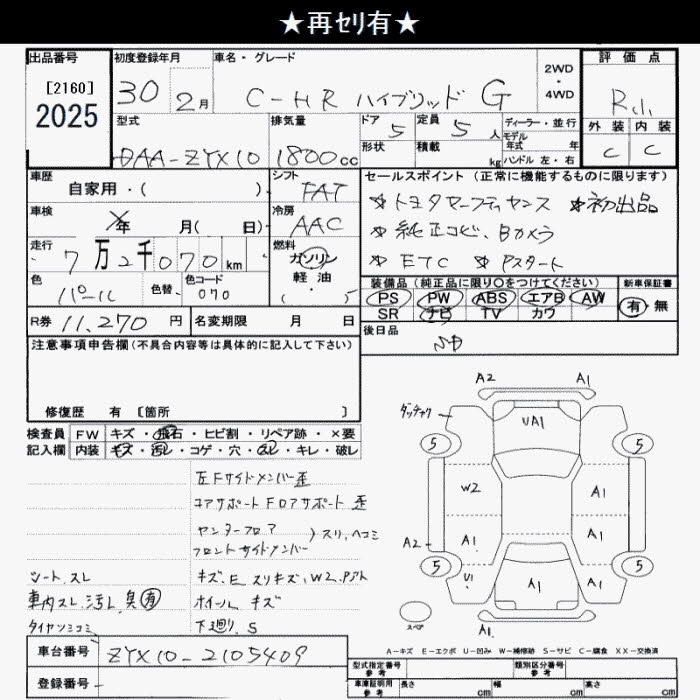 ★再ｾﾘ有★
出品番号
[2160]
2025
初度登録年月
30 2月
車名・グレード
C-HR ハイブリッド G
2WD
・
4WD
評価点
R
外装 内装
C C
型式
DAA-ZYX10
排気量
1800cc
ドア
5
定員
5人
ディーラー・並行
モデル
年式 年
形状
積載
kg
ハンドル 左・右
車歴
自家用・( )
シフト
FAT
車検
年 月( 日)
冷房
AAC
走行
7万2千070km
燃料
ガソリン
軽油
・( 5
色
パール
色替
色コード
070
セールスポイント (正常に機能するものに限ります)
☆初出品
☆純正ナビ、Bカメラ
☆ETC ☆Pスタート
装備品 (純正品に限り〇をつけてください)
新車保証書
PS PW ABS エアB AW
SR ナビ TV カワ
有・無
R券 11,270円
名変期限 月 日
後日品
注意事項申告欄(不具合内容等は具体的に記入して下さい)
修復歴 有 [箇所 ]
検査員
記入欄
FW キズ・飛石・ヒビ割・リペア跡・×要
内装 キズ・汚レ・コゲ・穴・スレ・キレ・破レ
左Fサイドメンバー歪
コアサポート FDアサポート 歪
センターフロア
フロントサイドメンバー
)スリ、ヘコミ
シート、スレ
キズ、E スリキズ、W2、Pアト
車内スレ、汚レ、臭有
ホイール キズ
下廻り、S
A2 A1
UA1
5 5
W2 A1
A2 A1 A1
5 5
U1 A1 A1
スペア
A1
A－キズ E－エクボ U－凹み W－補修跡 S－サビ C－腐食 XX－交換済
車台番号 ZYX10-2105409
登録番号
型式指定番号
参考
類別区分番号
車庫証明用
参考
長さ cm 幅 cm 高さ cm